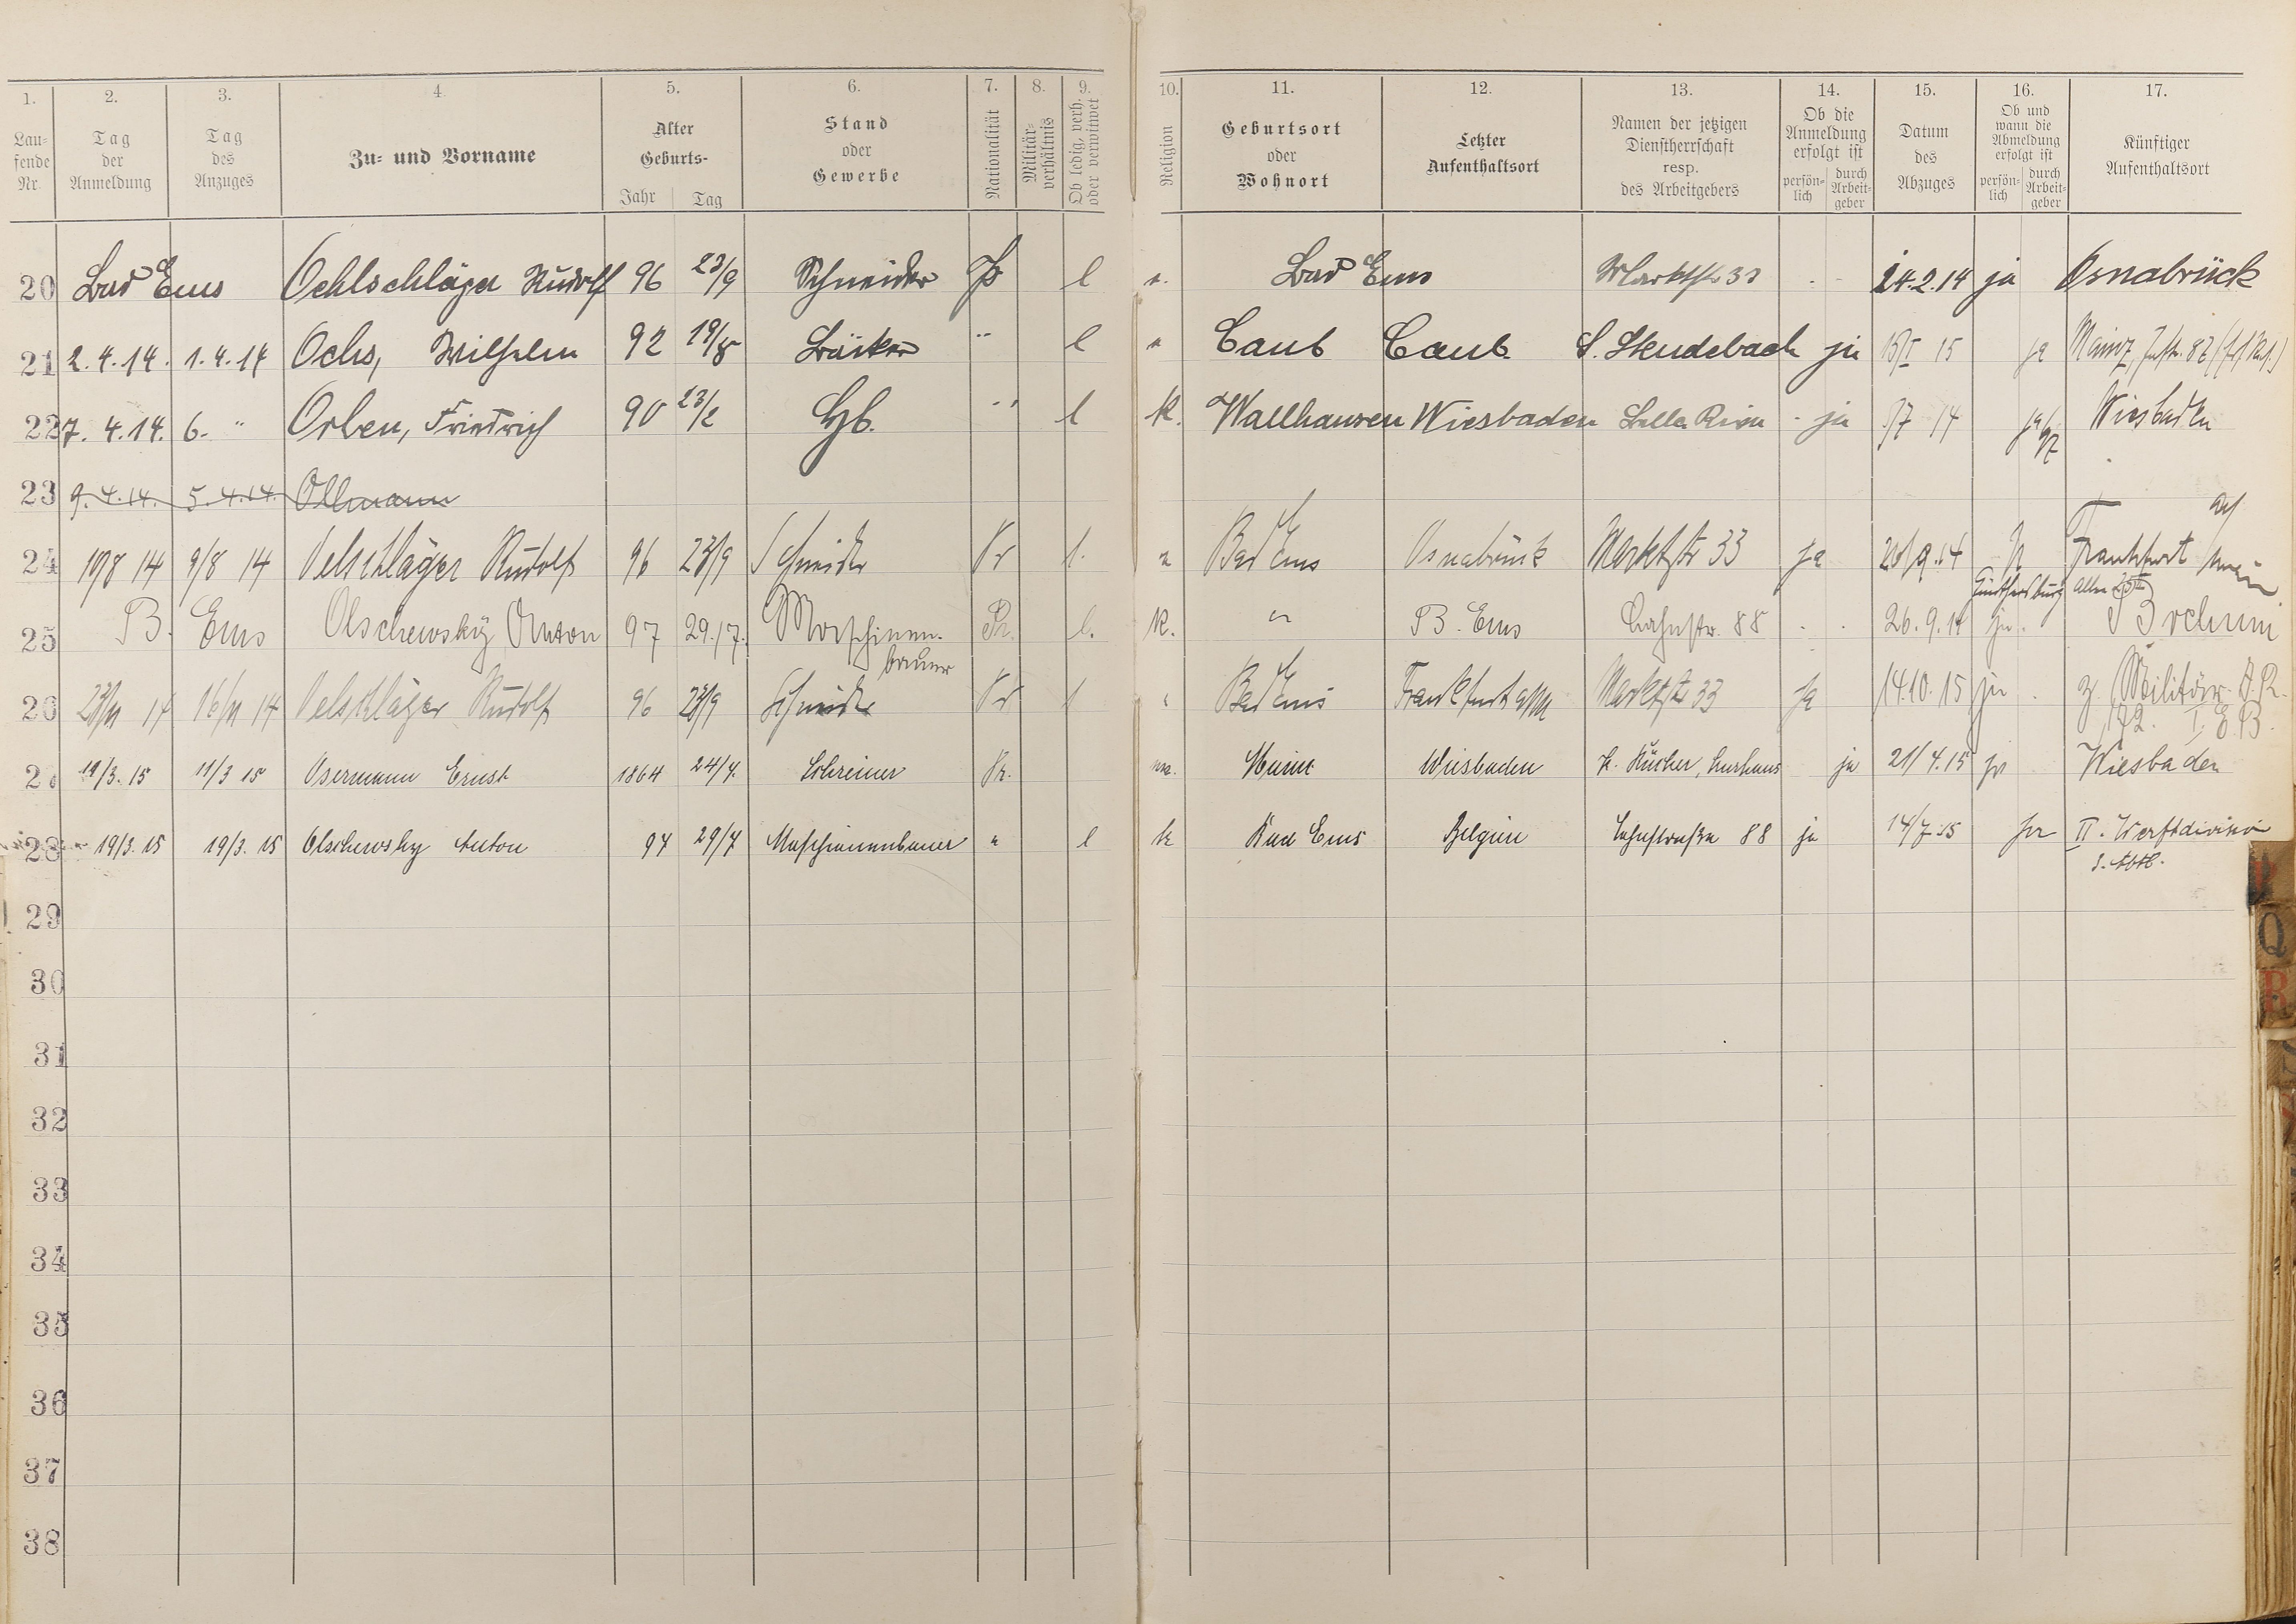 1. 2. 3. 4. 5. 6. 7. 8. 9. 10. 11. 12. 13. 14. 15. 16. 17.
Lau-
fende
Nr.
Tag
der
Anmeldung
Tag
des
Anzuges
Zu- und Vorname
Alter
Geburts-
Jahr Tag
Stand
oder
Gewerbe
Nationalität
Militär-
verhältnis
Ob ledig, verh.
oder verwitwet
Religion
Geburtsort
oder
Wohnort
Letzter
Aufenthaltsort
Namen der jetzigen
Dienstherrschaft
resp.
des Arbeitgebers
Ob die
Anmeldung
erfolgt ist
persön-
lich
durch
Arbeit-
geber
Datum
des
Abzuges
Ob und
wann die
Abmeldung
erfolgt ist
persön-
lich
durch
Arbeit-
geber
Künftiger
Aufenthaltsort
20 Bad Ems Oehlschläger Rudolf 96 23/9 Schneider Pr l Bad Ems Marktstr 33 24.2.14 ja Osnabrück
21 2.4.14. 1.4.14 Ochs, Wilhelm 92 19/8 Bäcker " l Caub Caub ja 15 ja Mainz,
22 7. 4.14. 6. " Orben, Friedrich 90 23/2 " l K. Wallhausen Wiesbaden ja 14 ja Wiesbaden
23 9.4.14. 5.4.14. Ollmann
24 10/8 14 9/8 14 Oelschläger Rudolf 96 23/9 Schneider Pr l. Bad Ems Osnabrück Marktstr 33 ja Frankfurt a/
Main
25 B. Ems Olschewsky Anton 97 29./7. Maschinen-
bauer
Pr. l. K. " B. Ems Lahnstr. 88 26.9.14 ja. Bochum
26 23/11 14 16/11 14 Oelschläger Rudolf 96 23/9 Schneider Pr l Bad Ems Frankfurt a/M Marktstr 33 ja 14.10.15 ja z. Militär
I. E. B.
27 11/3 15 Osermann Ernst 1864 24/4. Schreiner Pr. Wiesbaden Kurhaus ja 21/4.15 ja Wiesbaden
28 19/3. 15 19/3. 15 Olschewsky Anton 97 29/7 Maschinenbauer " l k Bad Ems Belgien Lahnstraße 88 ja 14/7 15 ja II. Werftdivision
29
30
31
32
33
34
35
36
37
38
P
Q
R